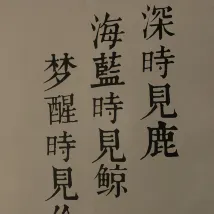 深時見鹿
海藍時見鲸
梦醒時見